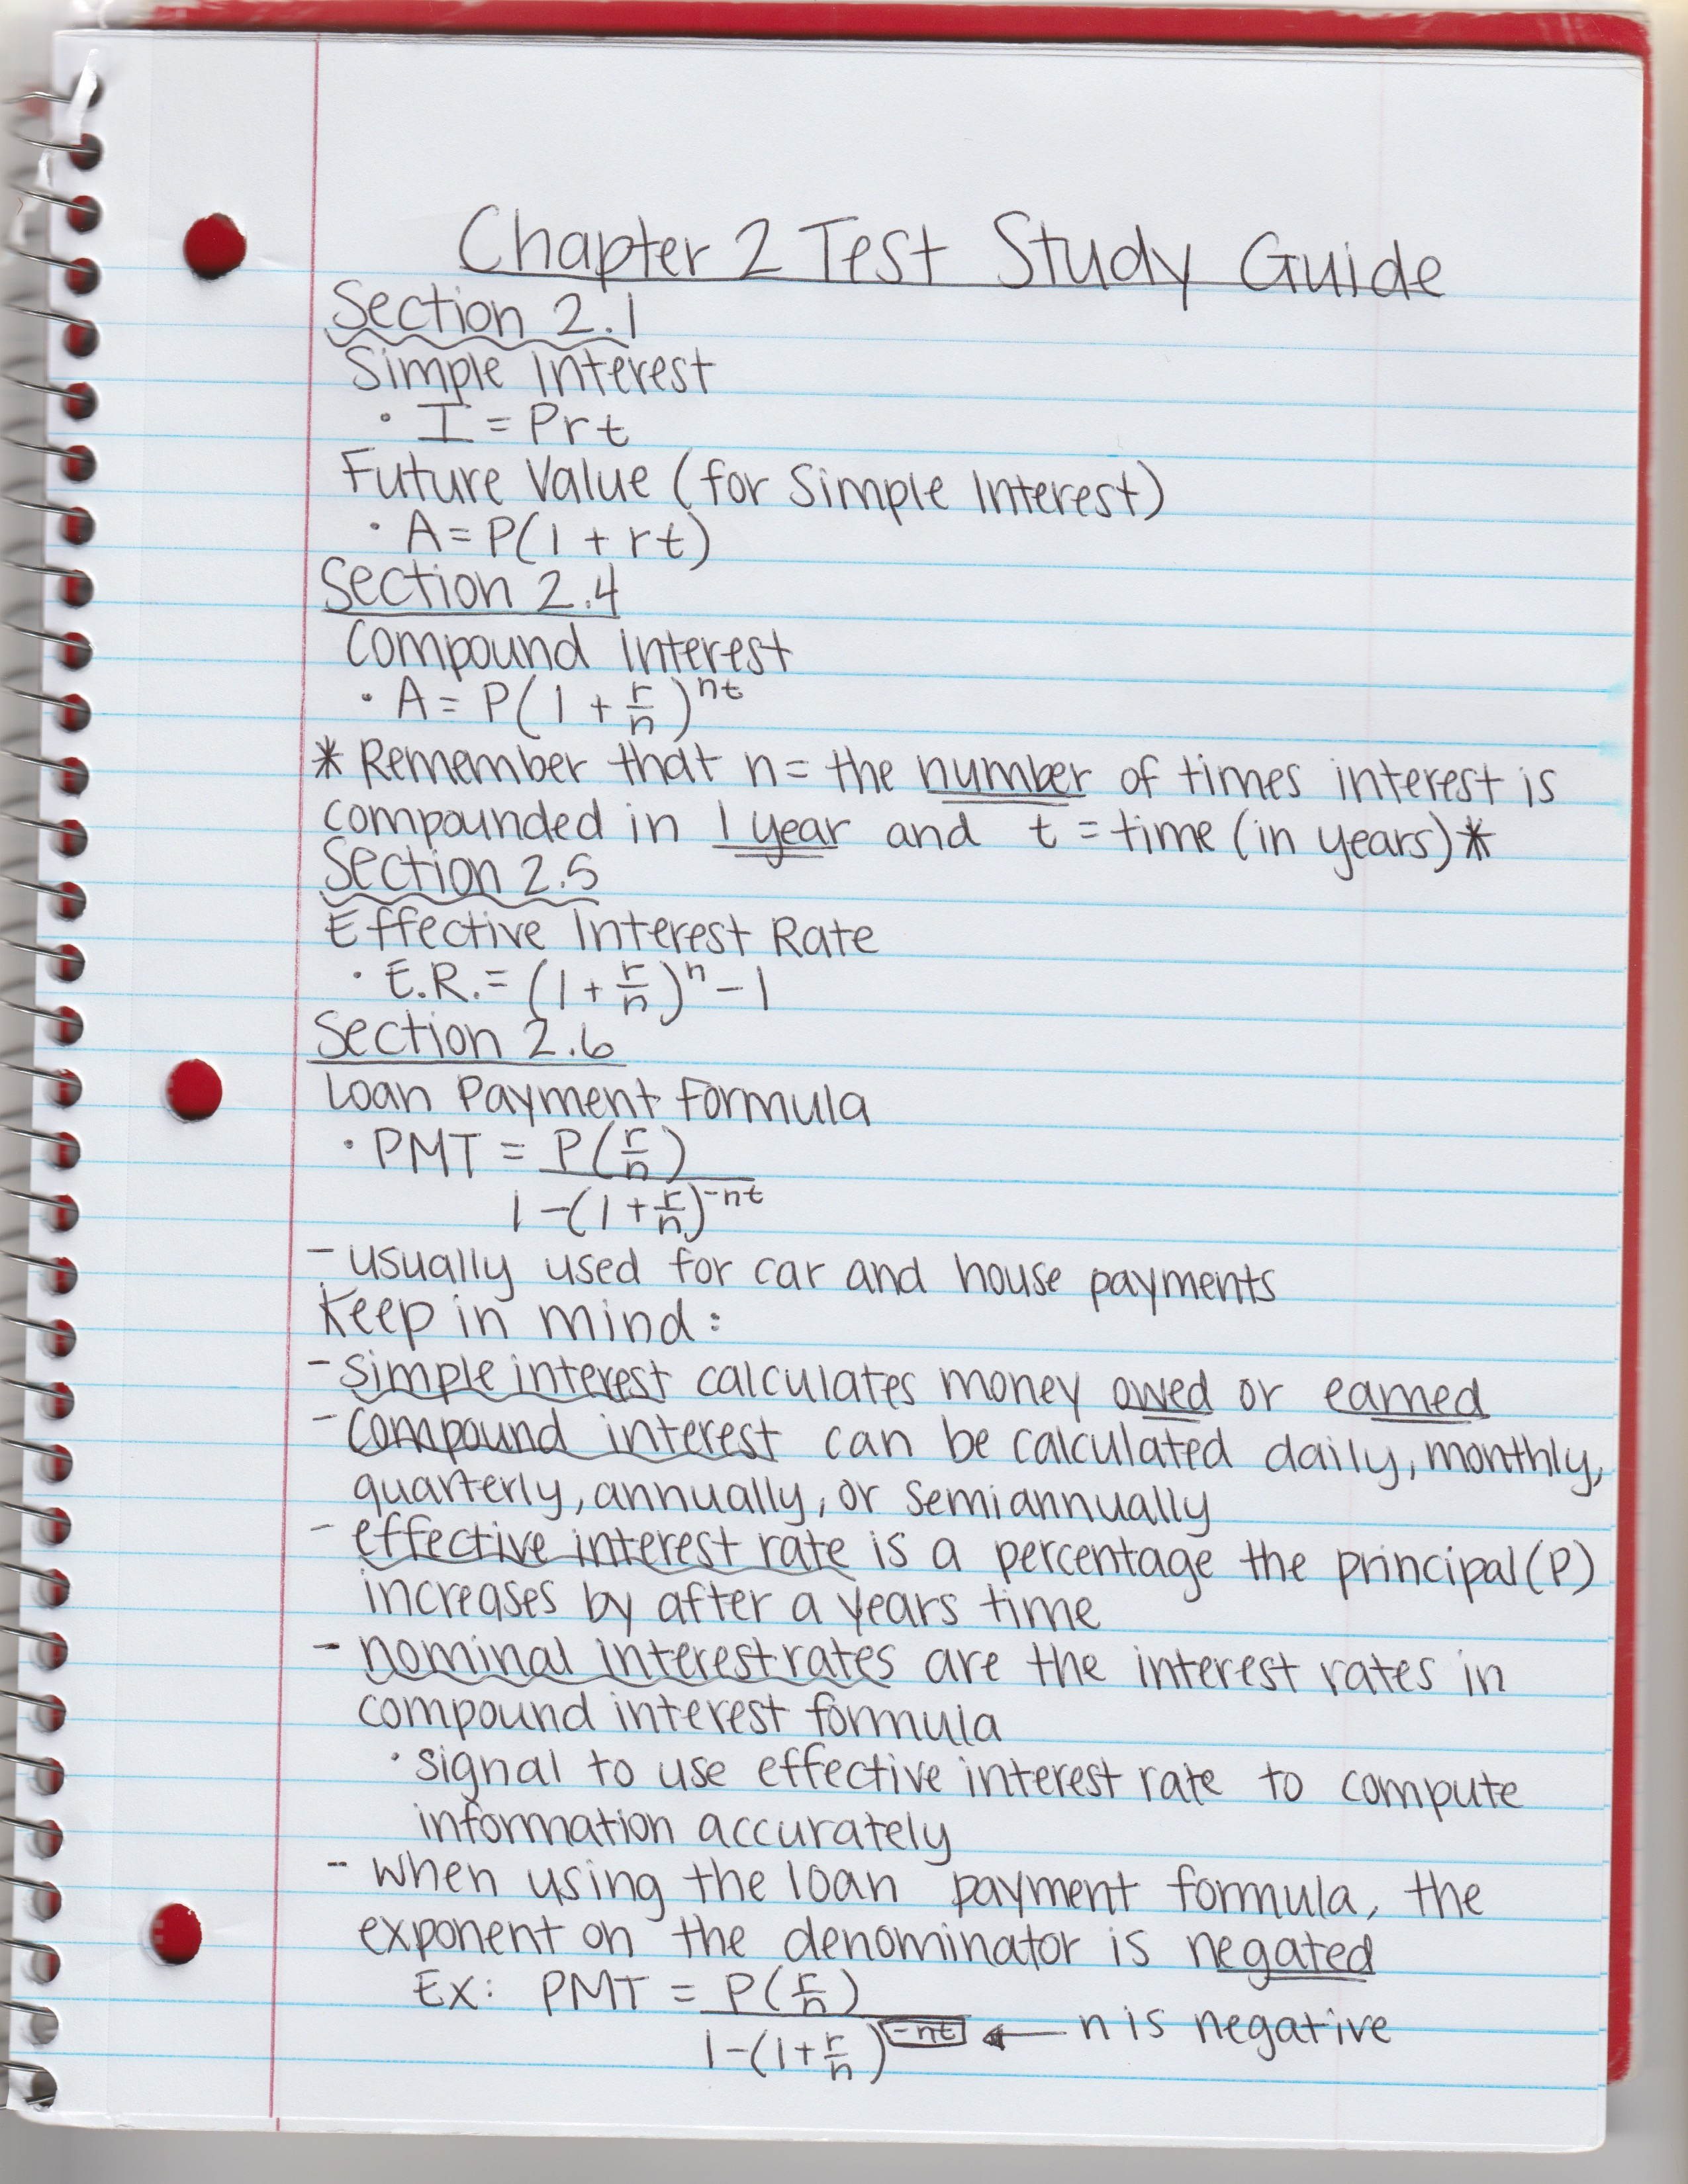 Chapter 2 Test Study Guide
Section 2.1
Simple Interest
• I = Prt
Future Value (for Simple Interest)
• A = P(1 + rt)
Section 2.4
Compound Interest
• A = P(1 + r/n)^nt
* Remember that n = the number of times interest is
compounded in 1 year and t = time (in years) *
Section 2.5
Effective Interest Rate
• E.R. = (1 + r/n)^n - 1
Section 2.6
Loan Payment Formula
• PMT = P(r/n)
1 - (1 + r/n)^-nt
- usually used for car and house payments
Keep in mind:
- simple interest calculates money owed or earned
- compound interest can be calculated daily, monthly,
quarterly, annually, or semiannually
- effective interest rate is a percentage the principal (P)
increases by after a years time
- nominal interest rates are the interest rates in
compound interest formula
• signal to use effective interest rate to compute
information accurately
- when using the loan payment formula, the
exponent on the denominator is negated
Ex: PMT = P(r/n)
1 - (1 + r/n)^-nt ← n is negative